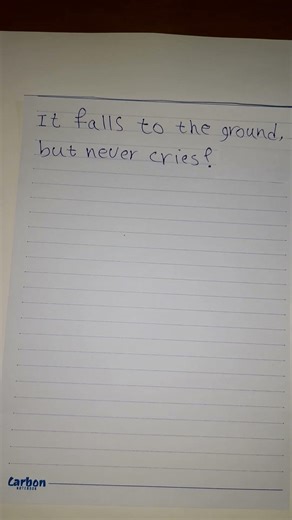 It falls to the ground,
but never cries?
Carbon
NOTEBOOK